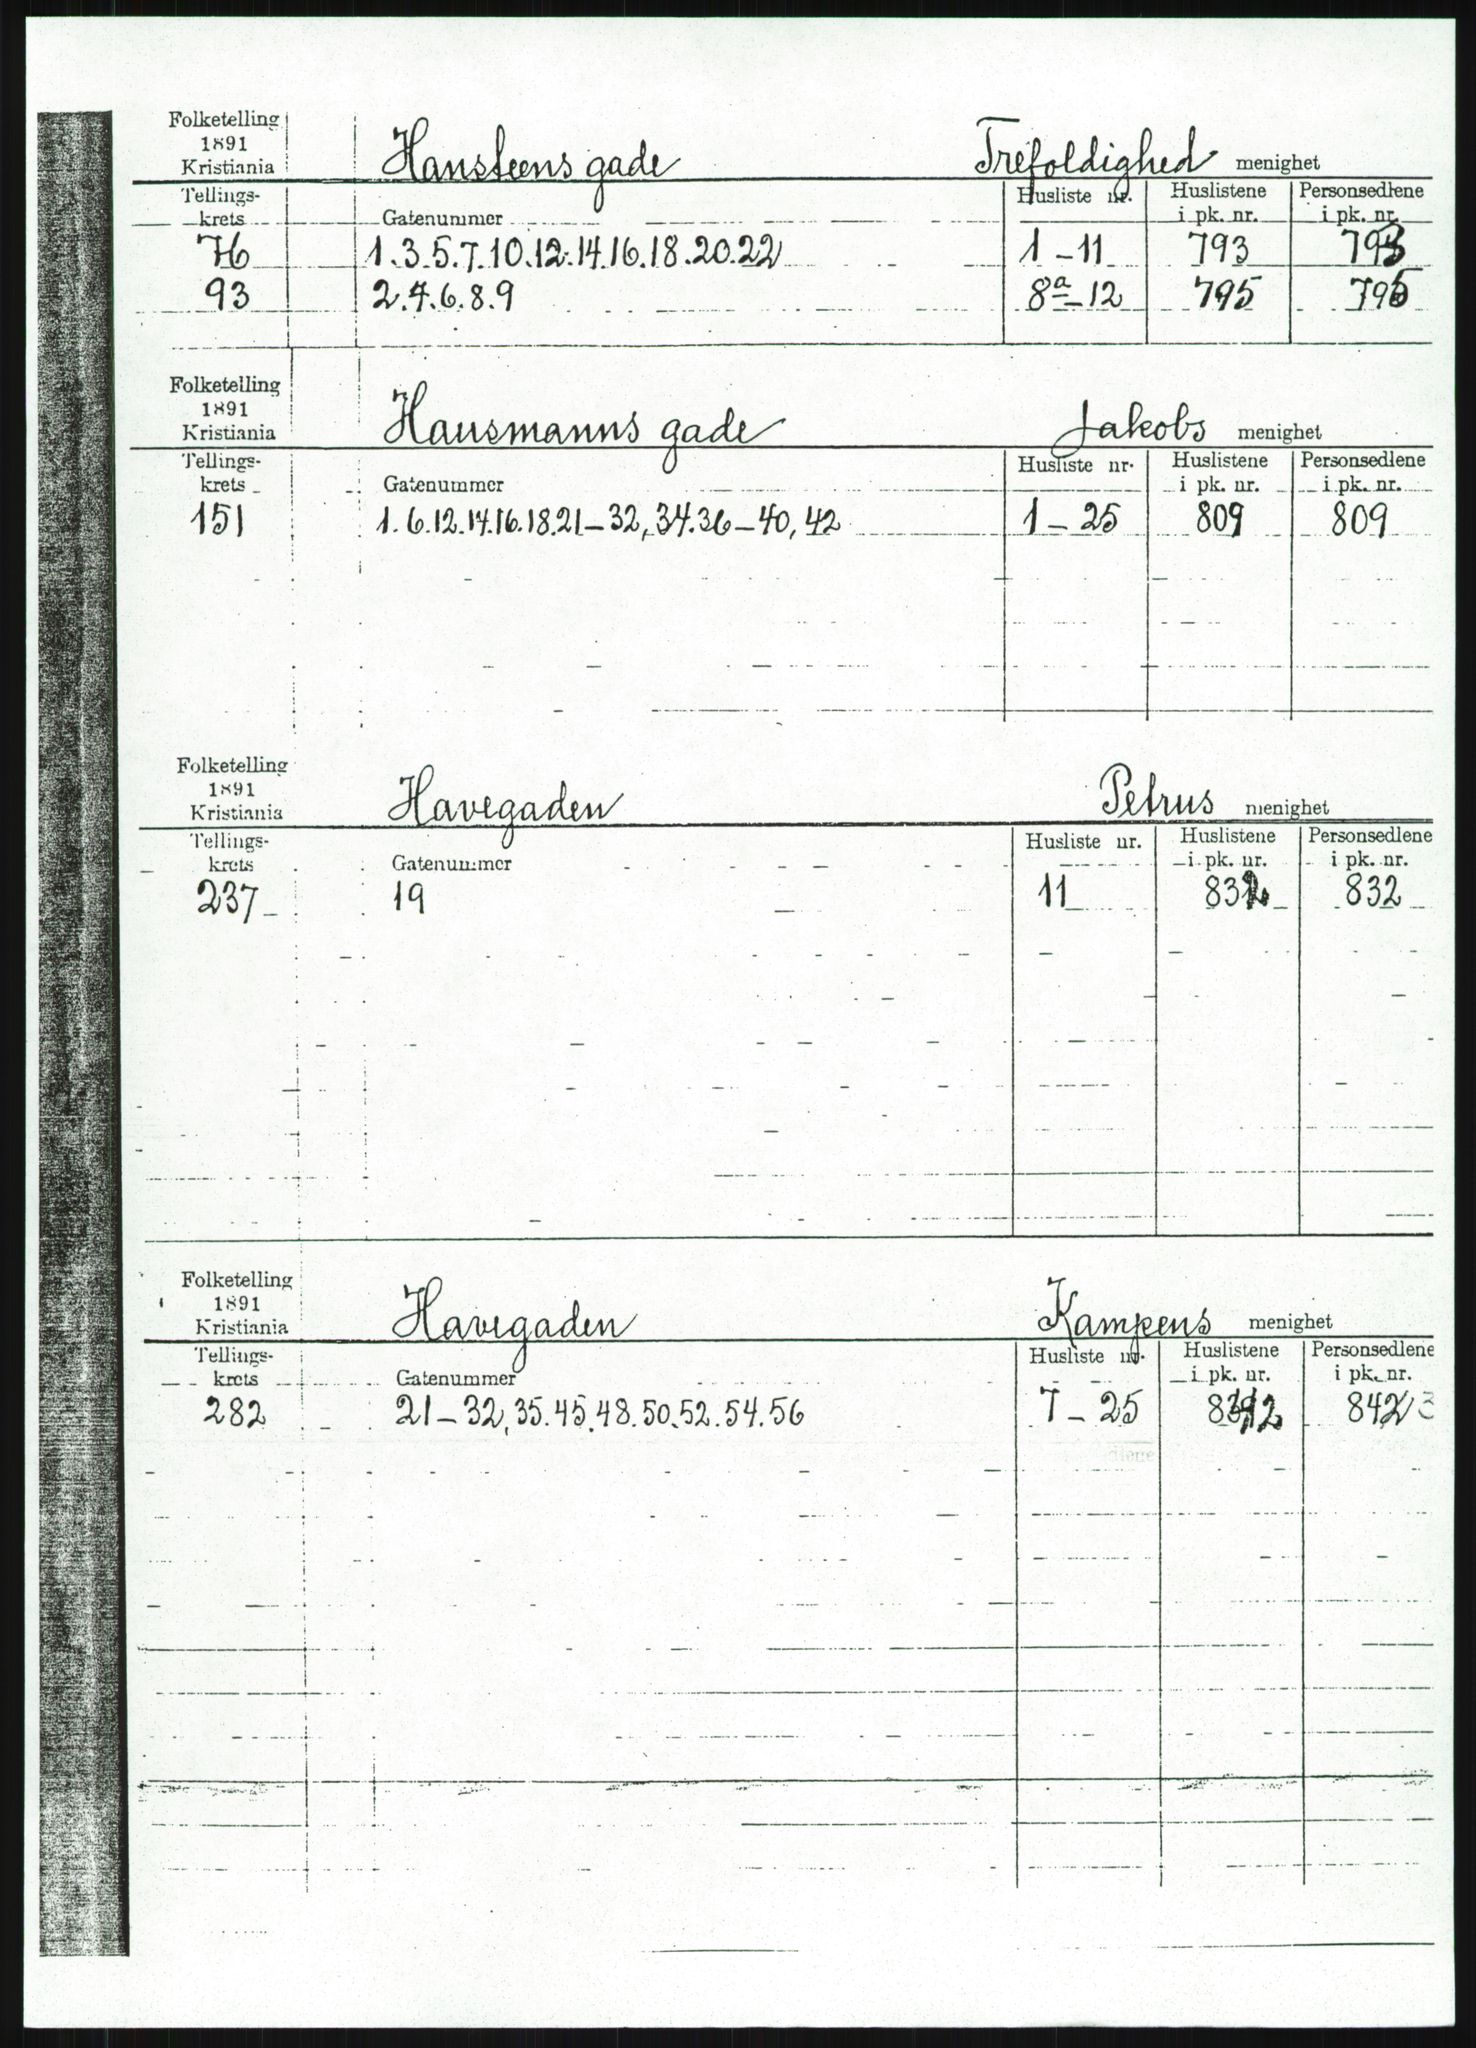 Folketelling
1891
Kristiania Hansteens gade Trefoldighed menighet
Tellings-krets Gatenummer Husliste nr. Huslistene i pk. nr. Personsedlene i pk. nr.
76 1.3.5.7.10.12.14.16.18.20.22 1-11 793 793
93 2.4.6.8.9 8a-12 795 795
Folketelling
1891
Kristiania Hausmanns gade Jakobs menighet
Tellings-krets Gatenummer Husliste nr. Huslistene i pk. nr. Personsedlene i pk. nr.
151 1.6.12.14.16.18.21-32, 34.36-40, 42 1-25 809 809
Folketelling
1891
Kristiania Havegaden Petrus menighet
Tellings-krets Gatenummer Husliste nr. Huslistene i pk. nr. Personsedlene i pk. nr.
237 19 11 832 832
Folketelling
1891
Kristiania Havegaden Kampens menighet
Tellings-krets Gatenummer Husliste nr. Huslistene i pk. nr. Personsedlene i pk. nr.
282 21-32, 35.45.48.50.52.54.56 7-25 842